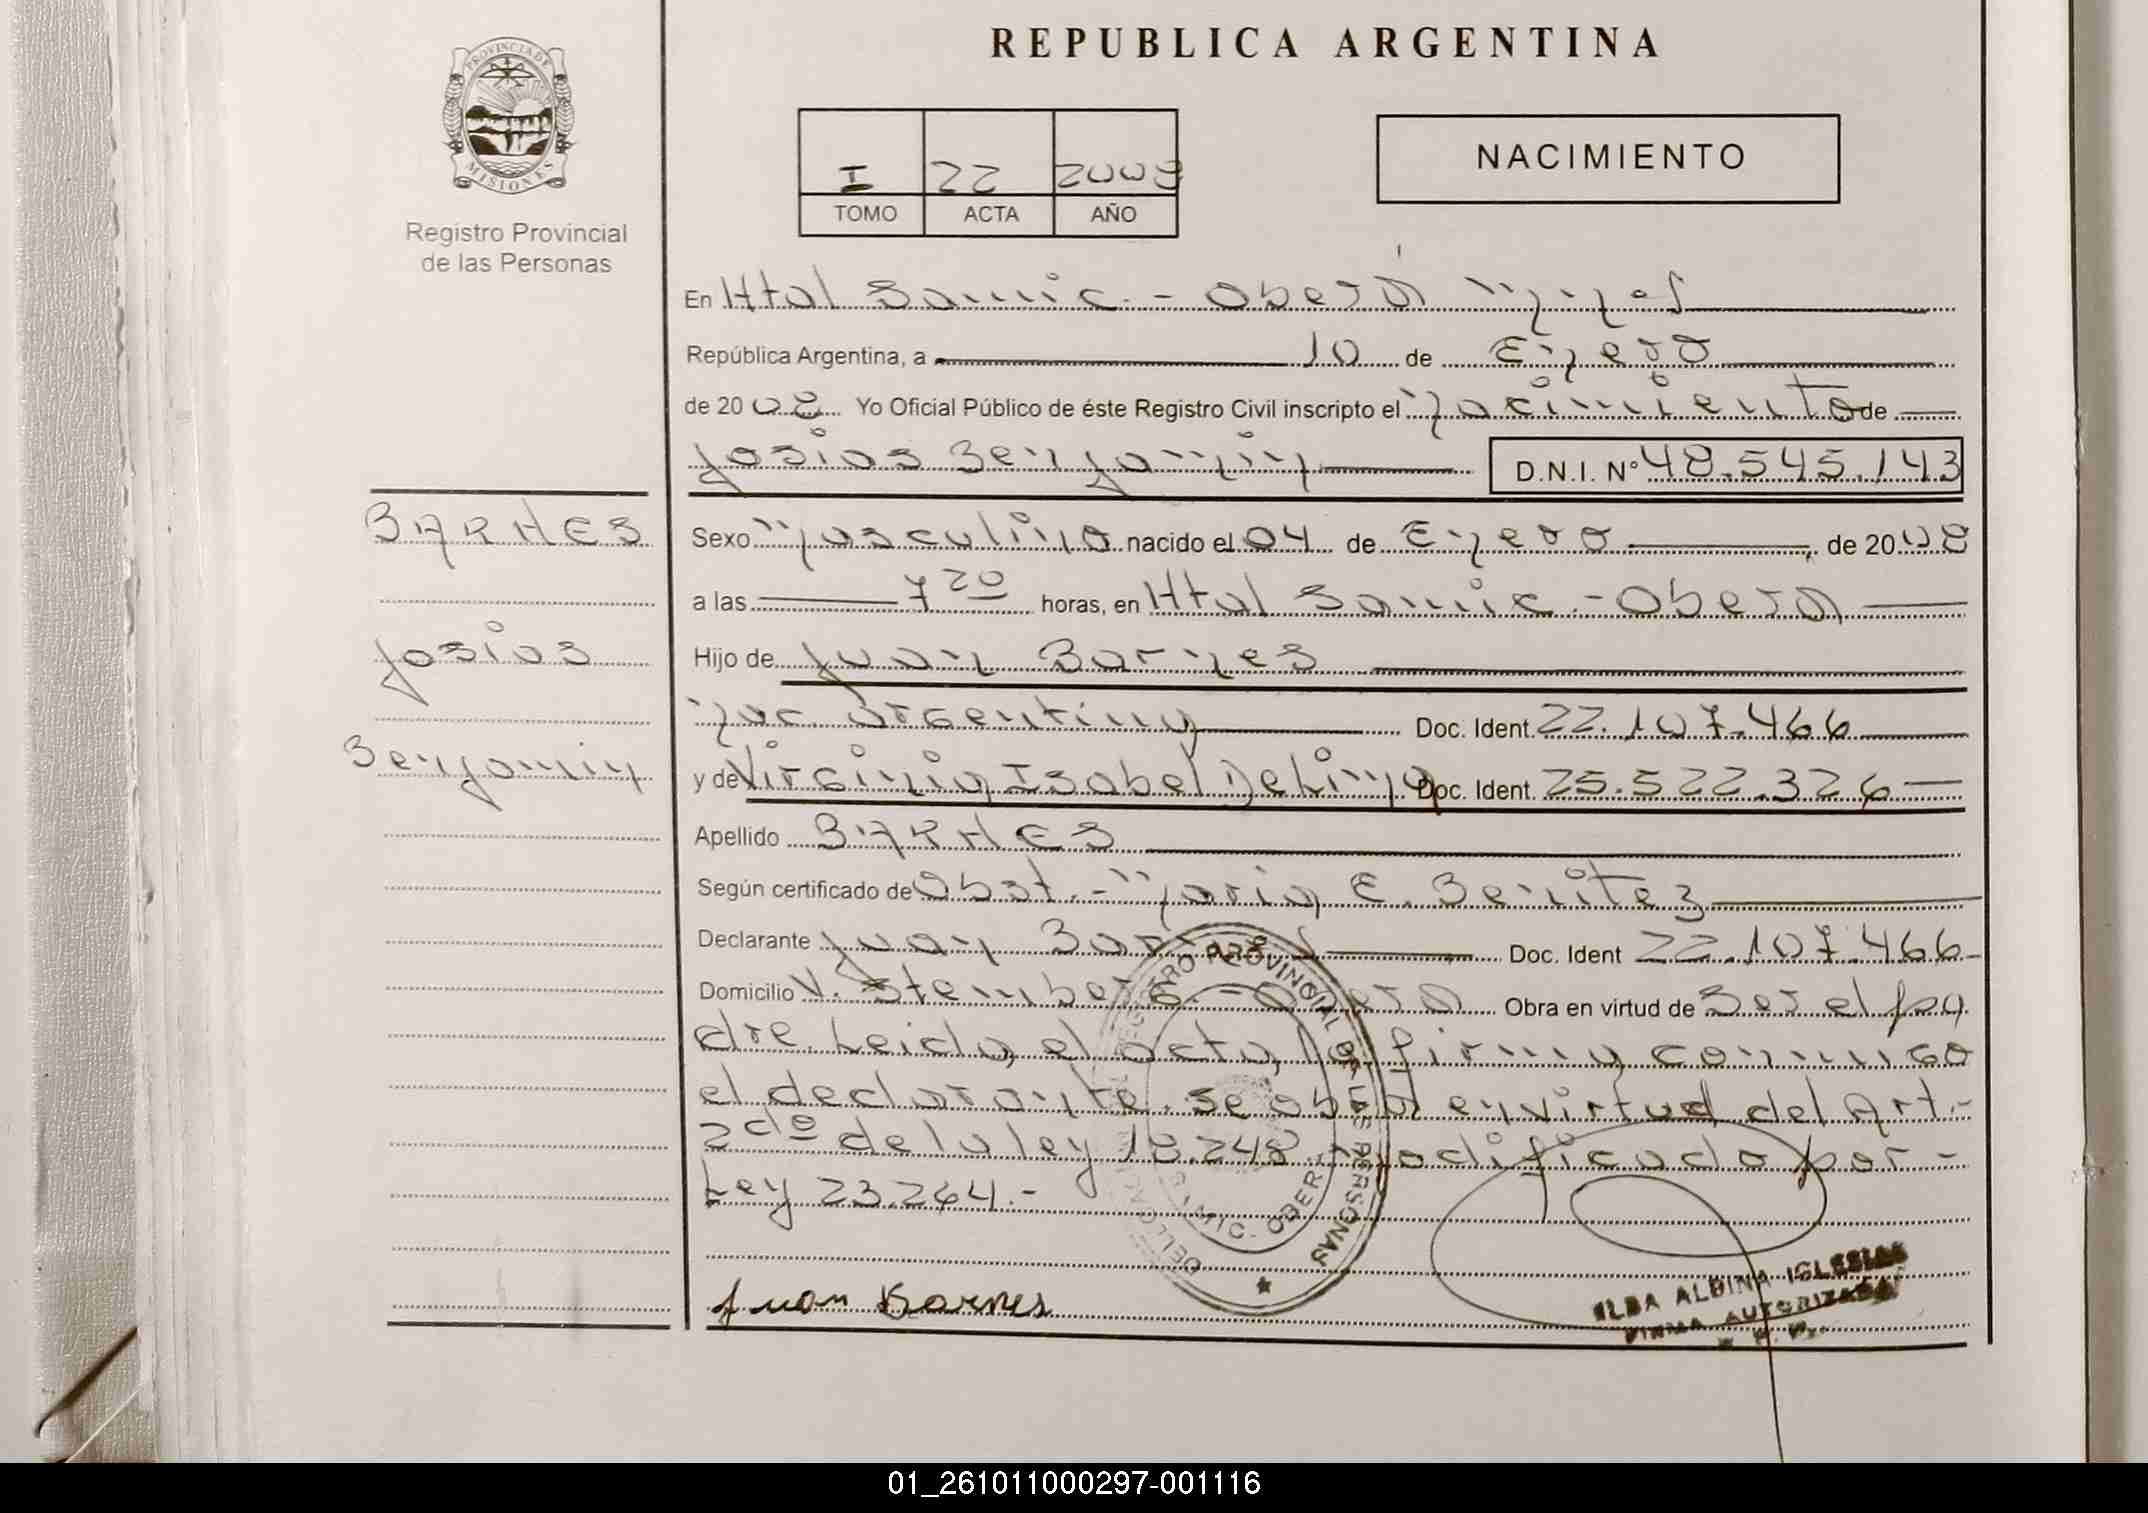 REPUBLICA ARGENTINA
PROVINCIA DE MISIONES
Registro Provincial
de las Personas
I 22 2008
TOMO ACTA AÑO
NACIMIENTO
En Htal Samic - Oberá Mnes
República Argentina, a 10 de Enero
de 2008 Yo Oficial Público de éste Registro Civil inscripto el Nacimiento de
Josias Benjamin D.N.I. Nº 48.545.143
BARNES
Josias
Benjamin
Sexo Masculino nacido el 04 de Enero, de 2008
a las 7 20 horas, en Htal Samic - Obera
Hijo de Juan Barnes
Nac. Argentina Doc. Ident. 22.107.466
y de Virginia Isabel De Lima Doc. Ident. 25.522.326
Apellido BARNES
Según certificado de Obst. - Maria E. Benitez
Declarante Juan Barnes Doc. Ident 22.107.466
Domicilio V. Stemberg - Obera Obra en virtud de Ser el pa
dre. Leida el acta, la firma conmigo
el declarante. Se obra en virtud del Art.-
2do de la ley 18.248 modificado por -
Ley 23.264.-
REGISTRO PROVINCIAL DE LAS PERSONAS
SAMIC - OBERA
Juan Barnes
ELBA ALBINA IGLESIAS
FIRMA AUTORIZADA
01_261011000297-001116